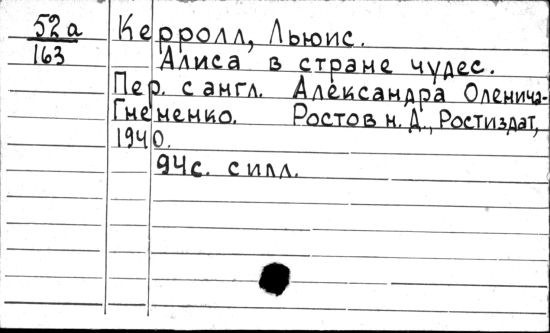 52а
163
Керролл, Льюис.
Алиса в стране чудес.
Пер. с англ. Александра Оленича-
Гнененко. Ростов н. Д., Ростиздат,
1940.
94с. с илл.